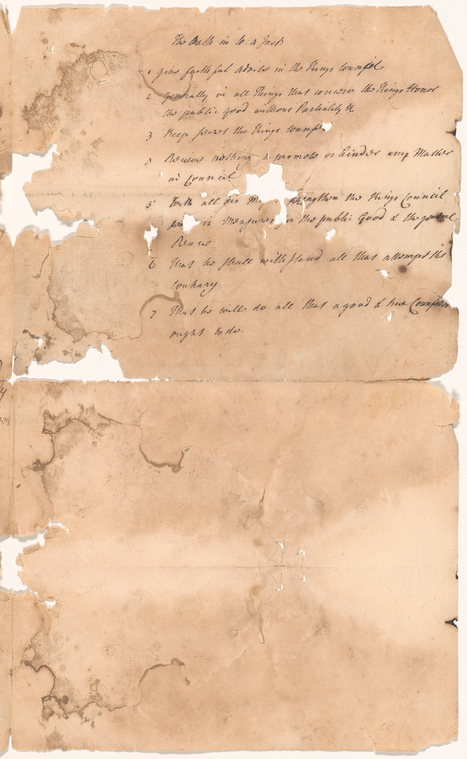 The Oath in 4: a Inst
1 give faithful Advice in the Kings Counsel
2 generally in all Things that concern the Kings Honor
the public good without Partiality &c
3 Keep secret the Kings Counse
Receive nothing to promote or hinder any Matter
in Council
5 With all his strengthen the Kings Council
in Measures for the public Good & the general
Peace
6 That he shall withstand all that attempt the
contrary
7 That he will do all that a good & true Counsellor
ought to do.